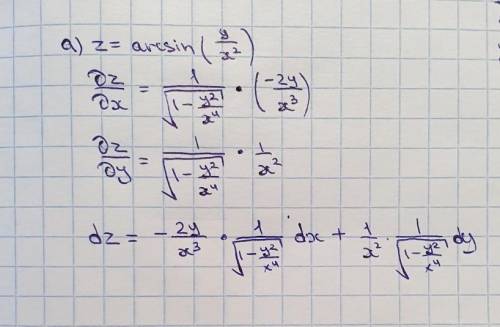 a) z = arcsin(y/x²)
∂z/∂x = 1/√(1 - y²/x⁴) • (-2y/x³)
∂z/∂y = 1/√(1 - y²/x⁴) • 1/x²
dz = -2y/x³ • 1/√(1 - y²/x⁴) dx + 1/x² · 1/√(1 - y²/x⁴) dy